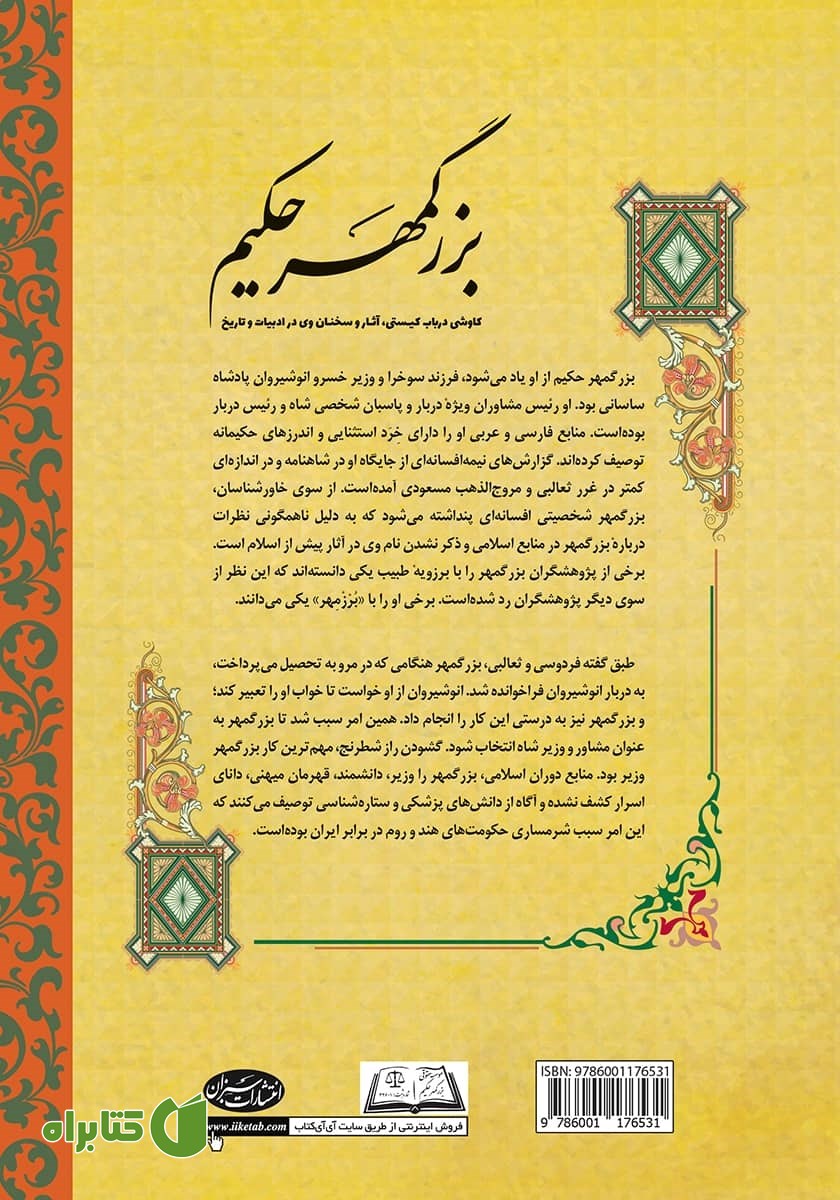 بزرگمهر حکیم
کاوشی درباب کیستی، آثار و سخنان وی در ادبیات و تاریخ
بزرگمهر حکیم از او یاد می‌شود، فرزند سوخرا و وزیر خسرو انوشیروان پادشاه
ساسانی بود. او رئیس مشاوران ویژهٔ دربار و پاسبان شخصی شاه و رئیس دربار
بوده‌است. منابع فارسی و عربی او را دارای خِرَد استثنایی و اندرزهای حکیمانه
توصیف کرده‌اند. گزارش‌های نیمه‌افسانه‌ای از جایگاه او در شاهنامه و در اندازه‌ای
کمتر در غرر ثعالبی و مروج‌الذهب مسعودی آمده‌است. از سوی خاورشناسان،
بزرگمهر شخصیتی افسانه‌ای پنداشته می‌شود که به دلیل ناهمگونی نظرات
دربارهٔ بزرگمهر در منابع اسلامی و ذکر نشدن نام وی در آثار پیش از اسلام است.
برخی از پژوهشگران بزرگمهر را با برزویهٔ طبیب یکی دانسته‌اند که این نظر از
سوی دیگر پژوهشگران رد شده‌است. برخی او را با «بُرْزْمِهر» یکی می‌دانند.
طبق گفته فردوسی و ثعالبی، بزرگمهر هنگامی که در مرو به تحصیل می‌پرداخت،
به دربار انوشیروان فراخوانده شد. انوشیروان از او خواست تا خواب او را تعبیر کند؛
و بزرگمهر نیز به درستی این کار را انجام داد. همین امر سبب شد تا بزرگمهر به
عنوان مشاور و وزیر شاه انتخاب شود. گشودن راز شطرنج، مهم‌ترین کار بزرگمهر
وزیر بود. منابع دوران اسلامی، بزرگمهر را وزیر، دانشمند، قهرمان میهنی، دانای
اسرار کشف نشده و آگاه از دانش‌های پزشکی و ستاره‌شناسی توصیف می‌کنند که
این امر سبب شرمساری حکومت‌های هند و روم در برابر ایران بوده‌است.
ISBN: 9786001176531
9 786001 176531
موسسه حقوقی
بزرگمهر حکیم
انتشارات سبزان
فروش اینترنتی از طریق سایت آی‌آی‌کتاب
www.iiketab.com
کتابراه